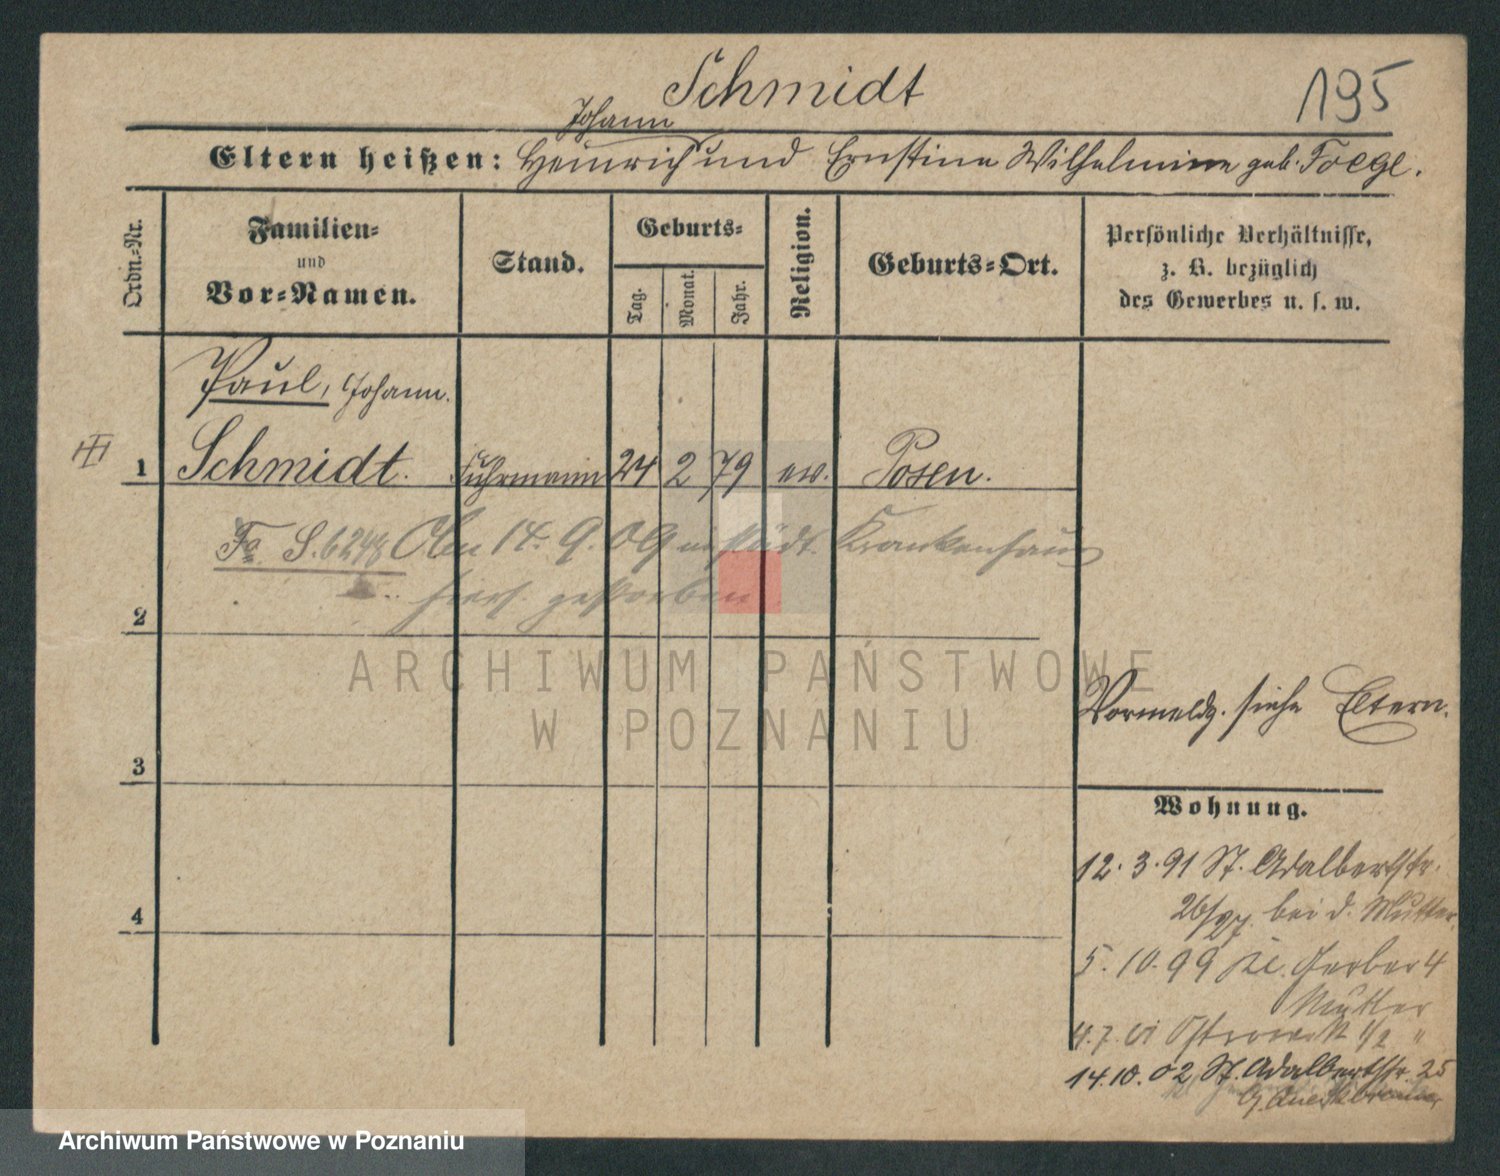 Schmidt
195
Johann
Eltern heißen: Heinrich und Ernstine Wilhelmine geb.
Ordn.-Nr.
Familien-
und
Vor-Namen.
Stand.
Geburts-
Tag.
Monat.
Jahr.
Religion.
Geburts-Ort.
Persönliche Verhältnisse,
z. B. bezüglich
des Gewerbes u. s. w.
Paul, Johann.
1 Schmidt. Fuhrmann 24 2 79 ev. Posen.
Fa S. 6248 14. 9. 09 im städt. Krankenhaus
hiers. gestorben
2
ARCHIWUM PAŃSTWOWE
W POZNANIU
Vormeldg. siehe Eltern.
3
Wohnung.
12. 3. 91 St. Adalbertstr.
bei d. Mutter.
4
5. 10. 99 Kl. Gerber 4
Mutter
4. 7. 01 "
14. 10. 02 St. Adalbertstr. 25
Archiwum Państwowe w Poznaniu